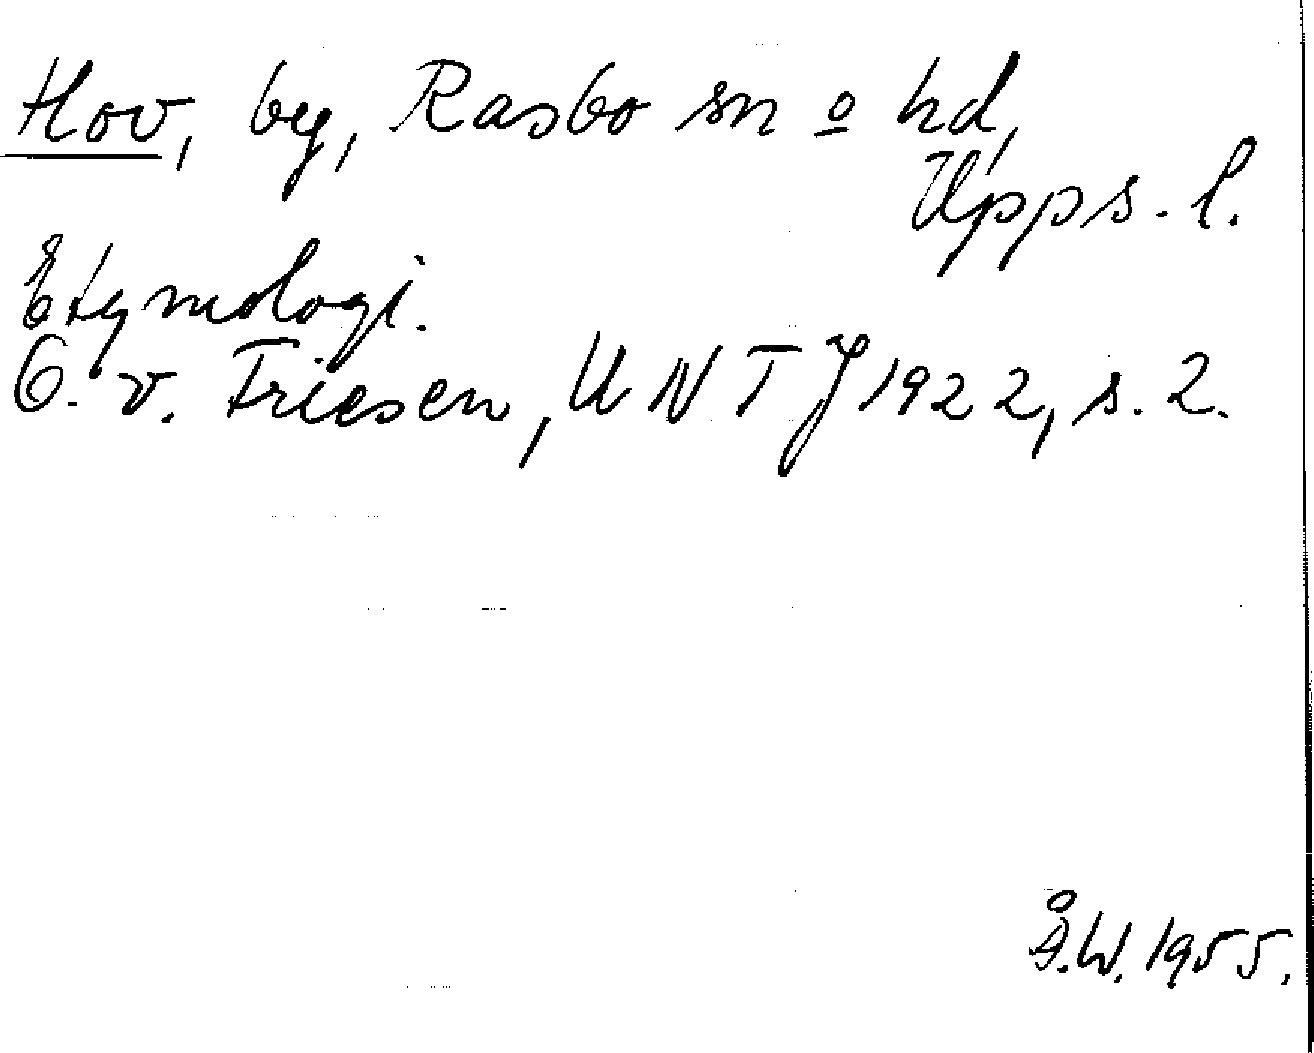 Hov, by, Rasbo sn o hd,
Upps. l.
Etymologi.
O. v. Friesen, UNTJ 1922, s. 2.
Å.W. 1955.